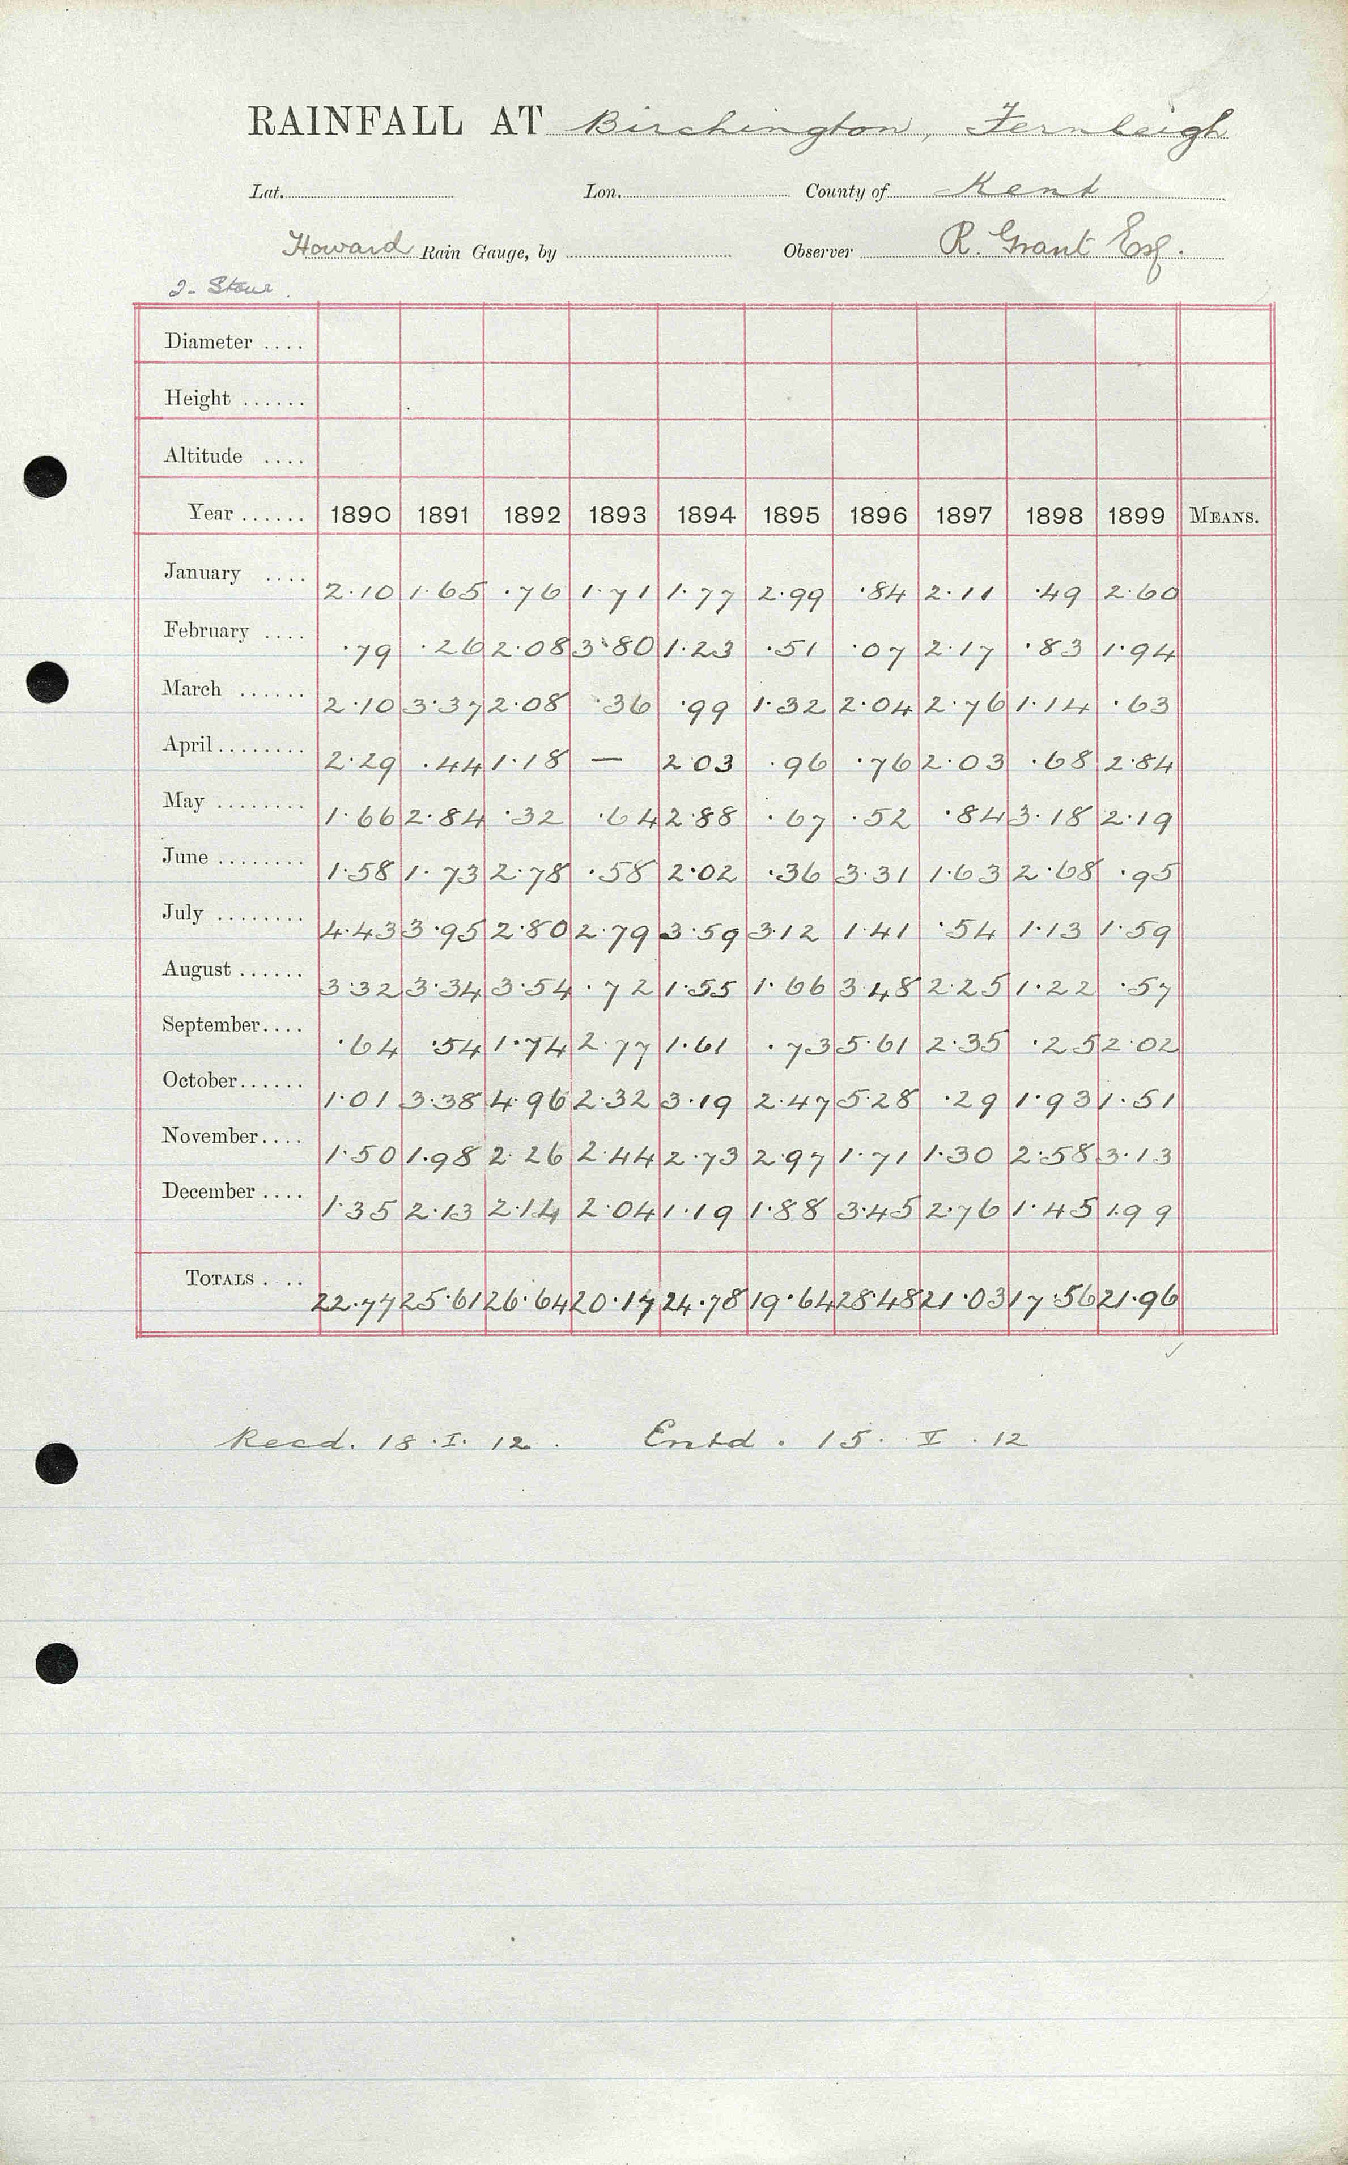 RAINFALL AT Birchington, Fernleigh
Lat. Lon. County of Kent
Howard Rain Gauge, by Observer R. Grant Esq.
2. Stour.
Diameter ....
Height ......
Altitude ....
Year ...... 1890 1891 1892 1893 1894 1895 1896 1897 1898 1899 MEANS.
January .... 2.10 1.65 .76 1.71 1.77 2.99 .84 2.11 .49 2.60
February .... .79 .26 2.08 3.80 1.23 .51 .07 2.17 .83 1.94
March ...... 2.10 3.37 2.08 .36 .99 1.32 2.04 2.76 1.14 .63
April ........ 2.29 .44 1.18 — 2.03 .96 .76 2.03 .68 2.84
May ........ 1.66 2.84 .32 .64 2.88 .67 .52 .84 3.18 2.19
June ........ 1.58 1.73 2.78 .58 2.02 .36 3.31 1.63 2.68 .95
July ........ 4.43 3.95 2.80 2.79 3.59 3.12 1.41 .54 1.13 1.59
August ...... 3.32 3.34 3.54 .72 1.55 1.66 3.48 2.25 1.22 .57
September.... .64 .54 1.74 2.77 1.61 .73 5.61 2.35 .25 2.02
October...... 1.01 3.38 4.96 2.32 3.19 2.47 5.28 .29 1.93 1.51
November.... 1.50 1.98 2.26 2.44 2.73 2.97 1.71 1.30 2.58 3.13
December .... 1.35 2.13 2.14 2.04 1.19 1.88 3.45 2.76 1.45 1.99
TOTALS . .. 22.77 25.61 26.64 20.17 24.78 19.64 28.48 21.03 17.56 21.96
Recd. 18.I.12. Entd. 15.V.12